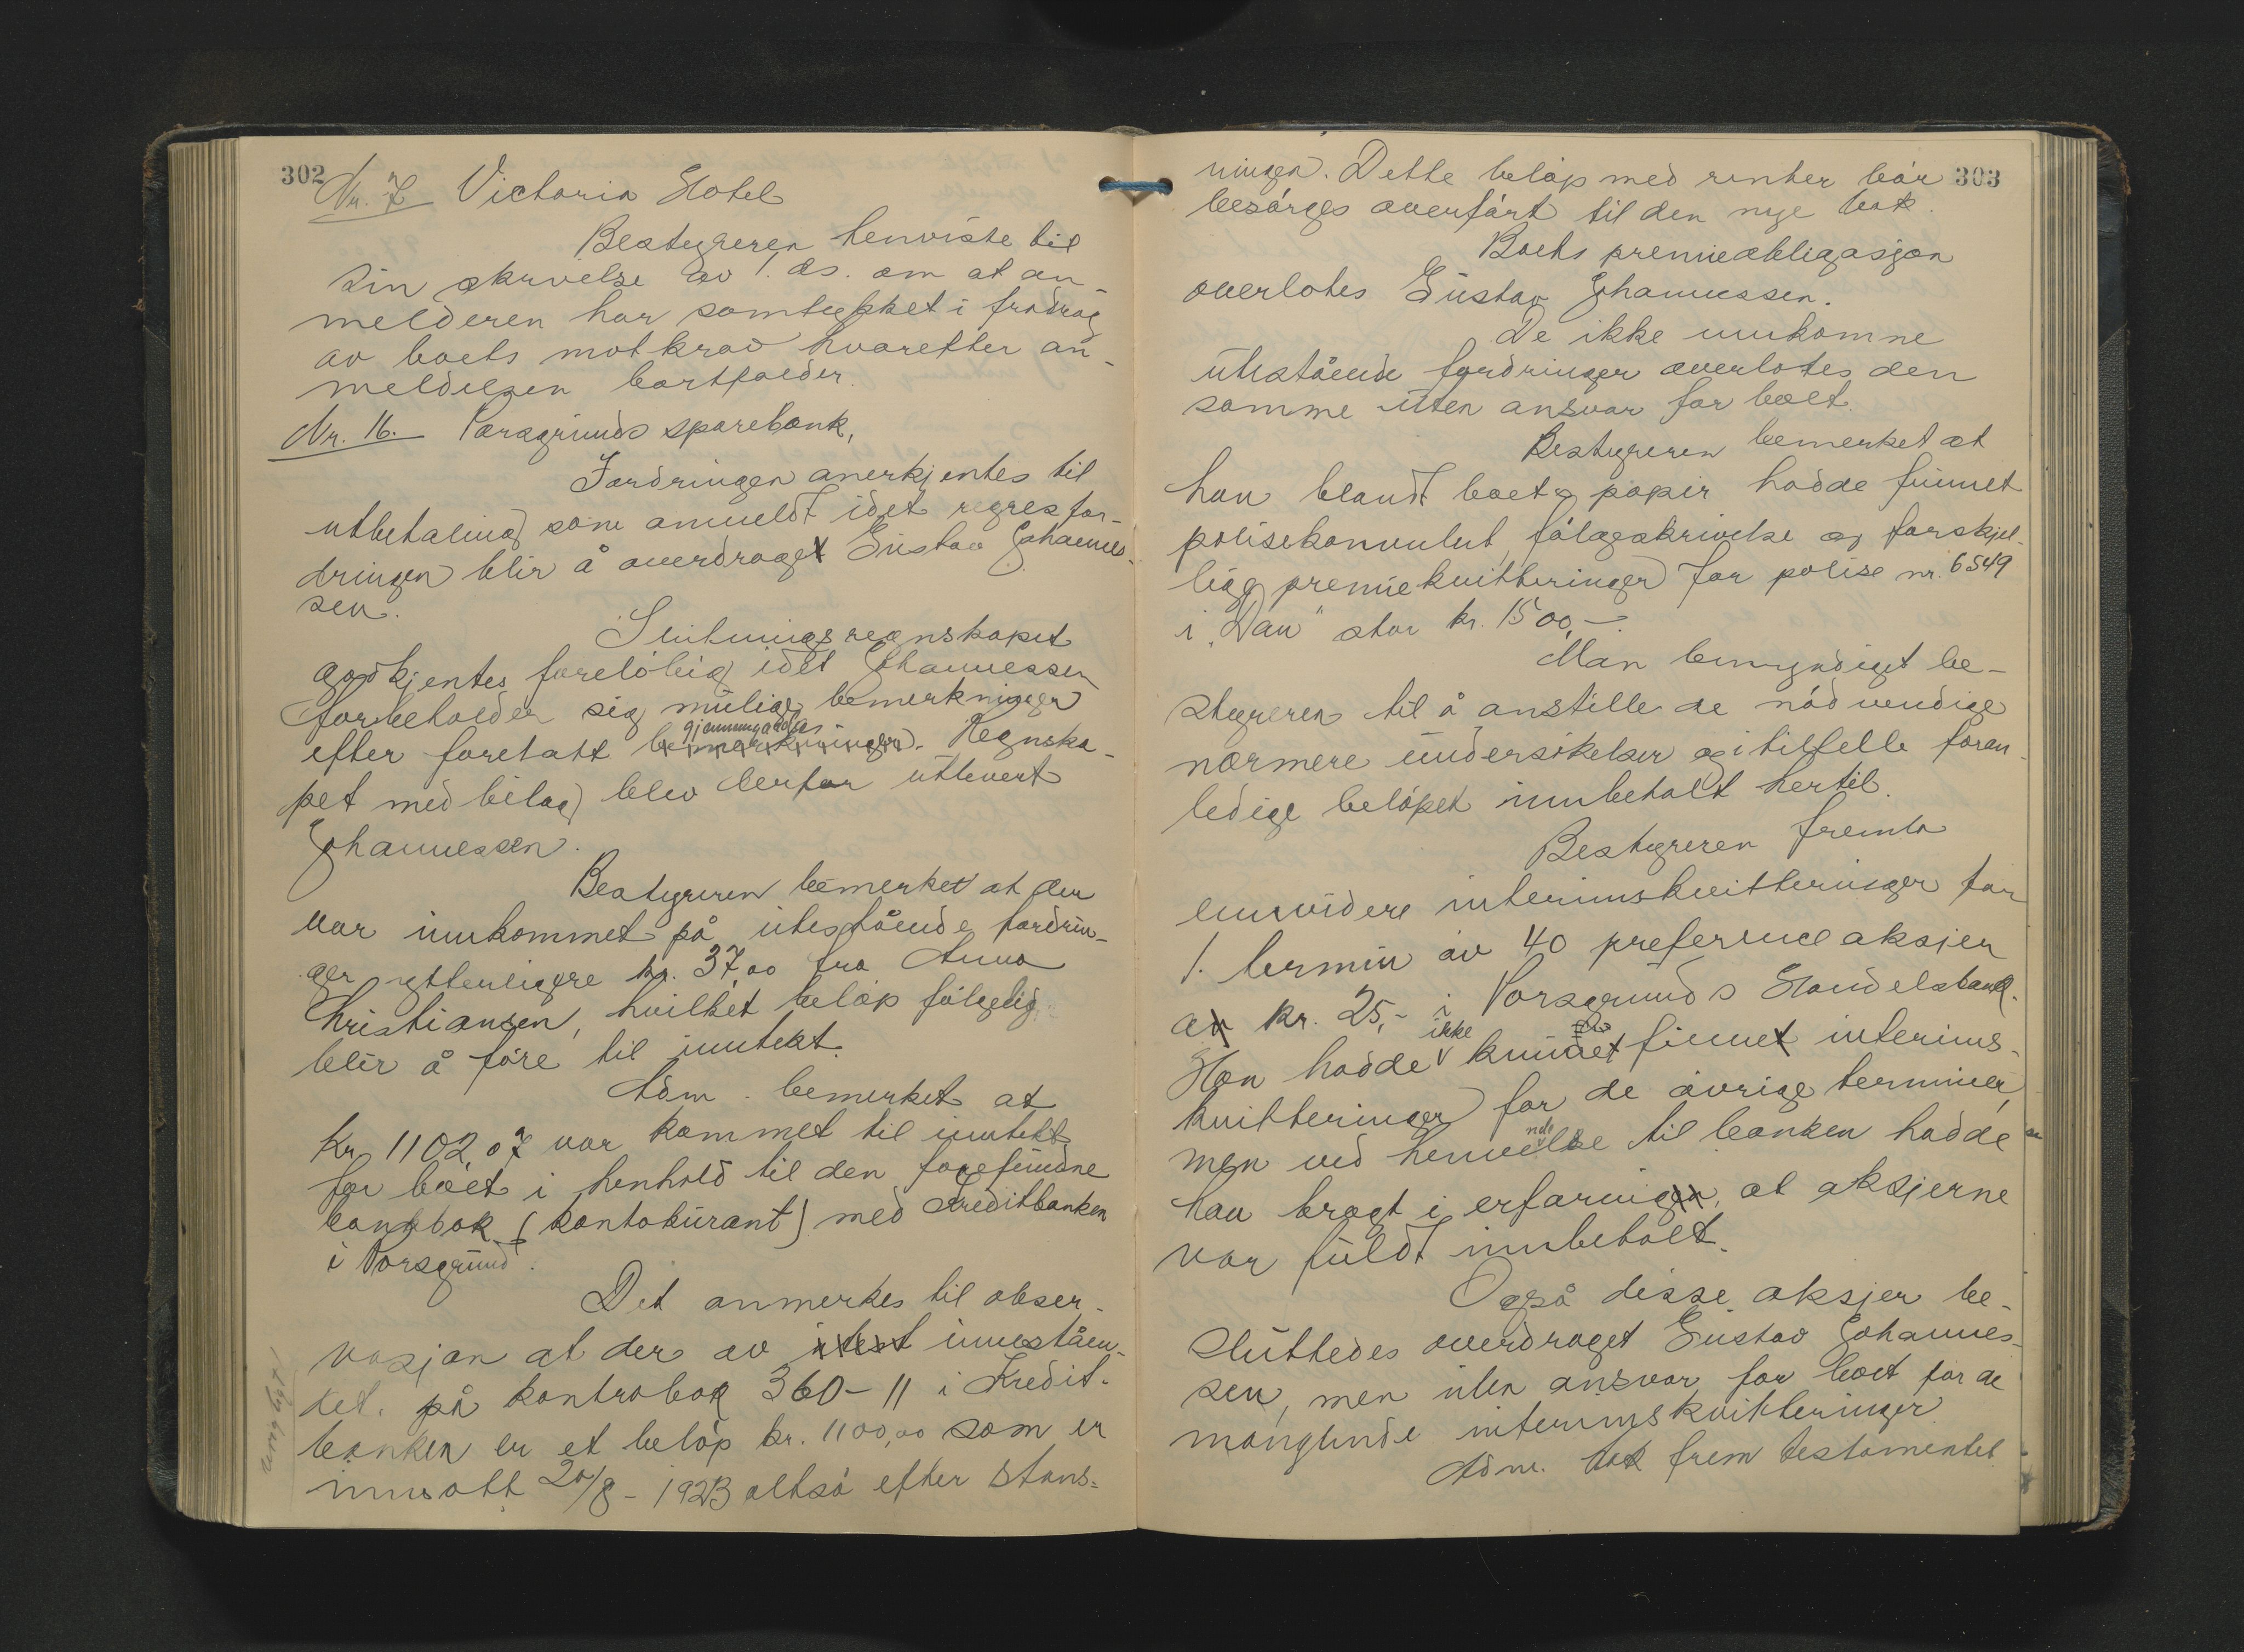 302
Nr. 7 Victoria Hotel
Bestyreren henviste til
sin skrivelse av 1. ds. om at an-
melderen har samtykket i fradrag
av boets motkrav hvoretter an-
meldelsen bortfalder.
Nr. 16. Porsgrunds sparebank,
Fordringen anerkjentes til
utbetaling som anmeldt idet regresfor-
dringen blir å overdraget Gustav Johannes-
sen.
Slutningsregnskapet
godkjentes foreløbig idet Johannessen
forbeholder sig mulige bemerkninger
gjennemgåelse
efter foretatt bemerkninger. Regnska-
pet med bilag blev derfor utlevert
Johannessen.
Bestyreren bemerket at der
var innkommet på utestående fordrin-
ger ytterligere kr. 37,00 fra Anna
Kristiansen, hvilket beløp følgelig
blir å føre til inntekt.
Adm. bemerket at
kr. 1102,07 var kommet til inntekt
for boet i henhold til den forefundne
bankbok (kontokurant) med Kreditbanken
i Porsgrund.
Det anmerkes til obser-
vasjon at der av inneståen-
det på kontrabok 360-11 i Kredit-
banken er et beløp kr. 1100,00 som er
innsatt 20/8 - 1923 altså efter stans-
303
ningen. Dette beløp med renter bør
besørges overført til den nye bok.
Boets premieobligasjon
overlotes Gustav Johannessen.
De ikke innkomne
utestående fordringer overlotes den
samme uten ansvar for boet.
Bestyreren bemerket at
han blandt boets papir hadde funnet
polisekonvolut, følgeskrivelse og forskjel-
lige premiekvitteringer for polise nr. 6549
i "Dan" stor kr. 1500,-.
Man bemyndiget be-
styreren til å anstille de nødvendige
nærmere undersøkelser og i tilfelle foran-
ledige beløpet innbetalt hertil.
Bestyreren fremla
ennvidere interimskvitteringer for
1. termin av 40 preferenceaksjer
a kr. 25,- i Porsgrunds Handelsbank.
ikke
Han hadde kunnet finne interims-
kvitteringer for de øvrige terminer,
nde
men ved henvendelse til banken hadde
han bragt i erfaring, at aksjerne
var fuldt innbetalt.
Også disse aksjer be-
sluttedes overdraget Gustav Johannes-
sen, men uten ansvar for boet for de
manglende interimskvitteringer
Adm. tok frem testamentet